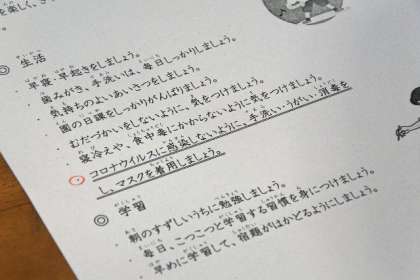 を楽しく、
◎ 生活
・早寝・早起きをしましょう。
・歯みがき、手洗いは、毎日しっかりしましょう。
・気持ちのよいあいさつをしましょう。
・園の日課をしっかりがんばりましょう。
・むだづかいをしないように、気をつけましょう。
・寝冷えや、食中毒にかからないように気をつけましょう。
・コロナウイルスに感染しないように、手洗い・うがい・消毒を
し、マスクを着用しましょう。
◎ 学習
・朝のすずしいうちに勉強しましょう。
・毎日、こつこつと学習する習慣を身につけましょう。
・早めに学習して、宿題がはかどるようにしましょう。